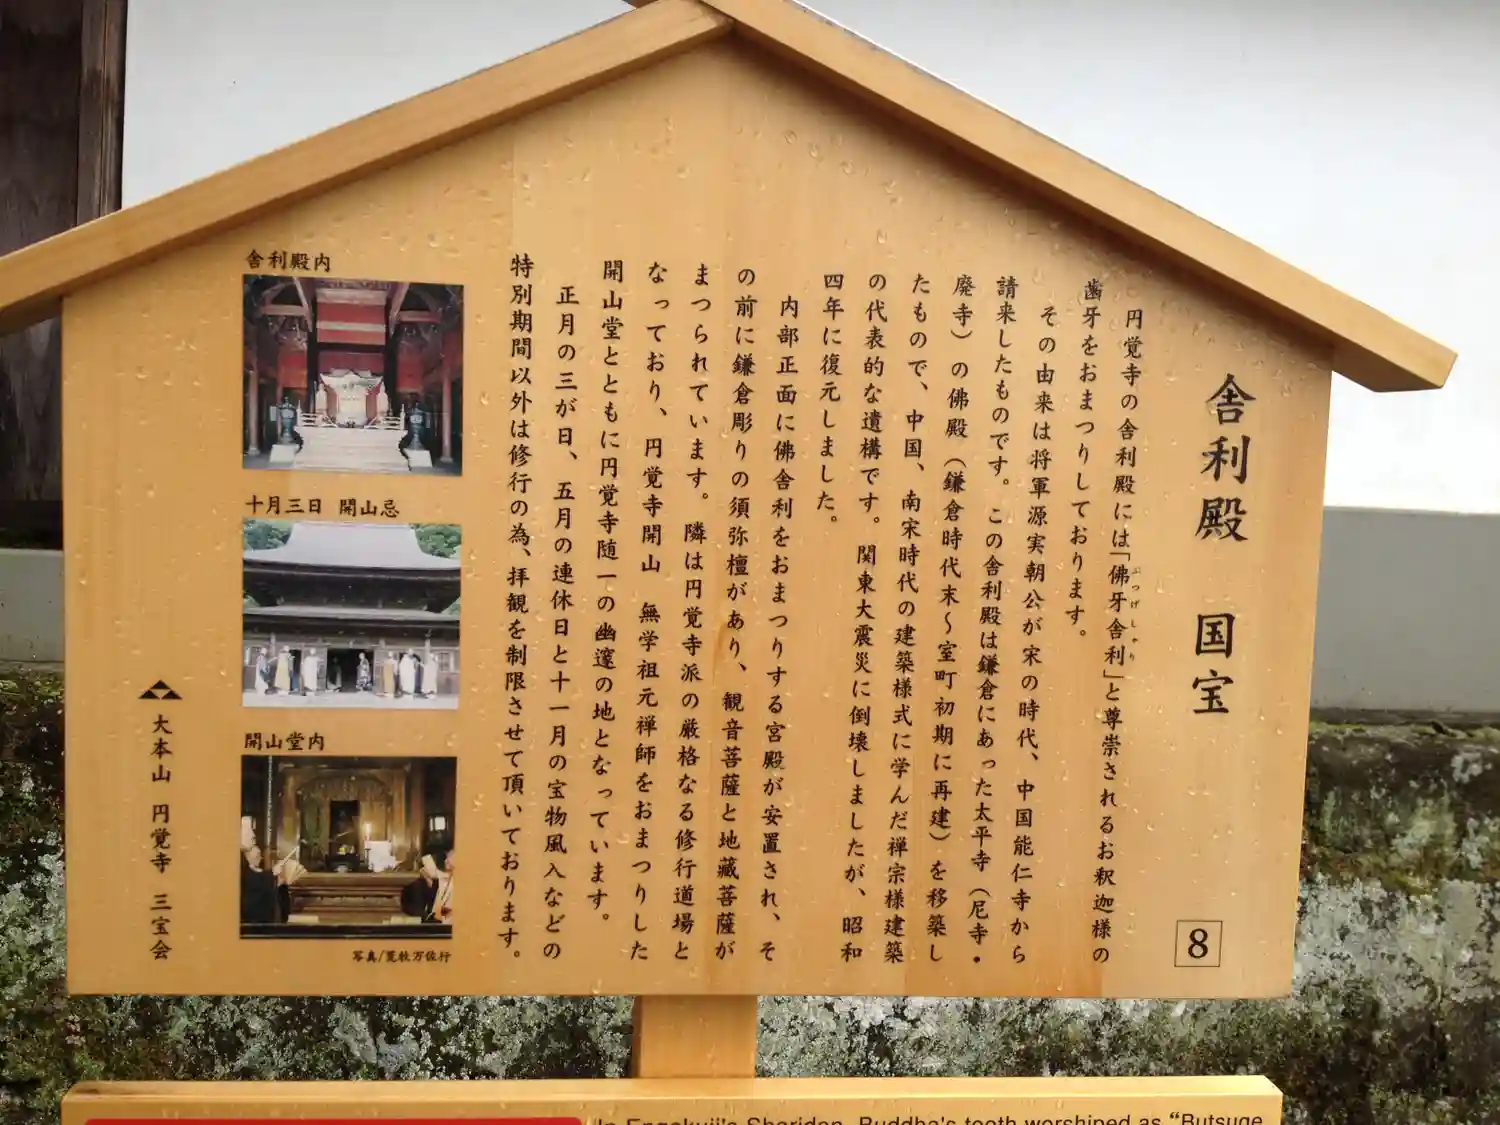 舎利殿 国宝
8
円覚寺の舎利殿には「佛牙舎利」と尊崇されるお釈迦様の
ぶつげしゃり
歯牙をおまつりしております。
その由来は将軍源実朝公が宋の時代、中国能仁寺から
請来したものです。この舎利殿は鎌倉にあった太平寺（尼寺・
廃寺）の佛殿（鎌倉時代末～室町初期に再建）を移築し
たもので、中国、南宋時代の建築様式に学んだ禅宗様建築
の代表的な遺構です。関東大震災に倒壊しましたが、昭和
四年に復元しました。
内部正面に佛舎利をおまつりする宮殿が安置され、そ
の前に鎌倉彫りの須弥檀があり、観音菩薩と地蔵菩薩が
まつられています。隣は円覚寺派の厳格なる修行道場と
なっており、円覚寺開山 無学祖元禅師をおまつりした
開山堂とともに円覚寺随一の幽邃の地となっています。
正月の三が日、五月の連休日と十一月の宝物風入などの
特別期間以外は修行の為、拝観を制限させて頂いております。
舎利殿内
十月三日 開山忌
開山堂内
写真/荒牧万佐行
大本山 円覚寺 三宝会
In Engakuji's Shariden, Buddha's tooth worshiped as "Butsuge